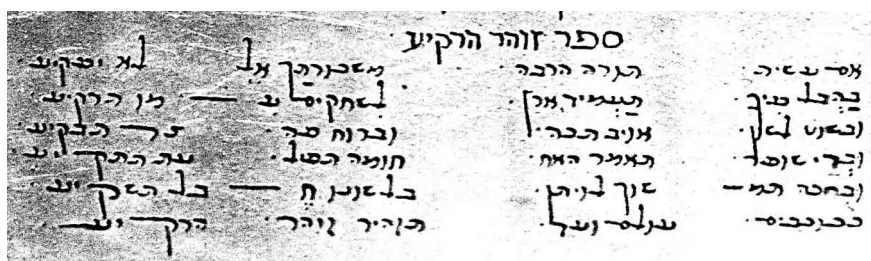 ספר זוהר הרקיע
אם עשית · תורה הרבה · משכורתך אל לא יפקיע ·
בהבל פיך · תעמיד ארץ · לשחקים ע — מן הרקיע ·
ובשוט לשון · אויב תכה · וברוח פה · צר תבקיע ·
שופר · תאמר האח · חומה תפול · עת התקיע ·
ובחכה תמ— שוך לויתן · בלשונו ח — בל תשקיע ·
ככוכבים · עולם ועד · תזהיר זוהר · הרקיע ·